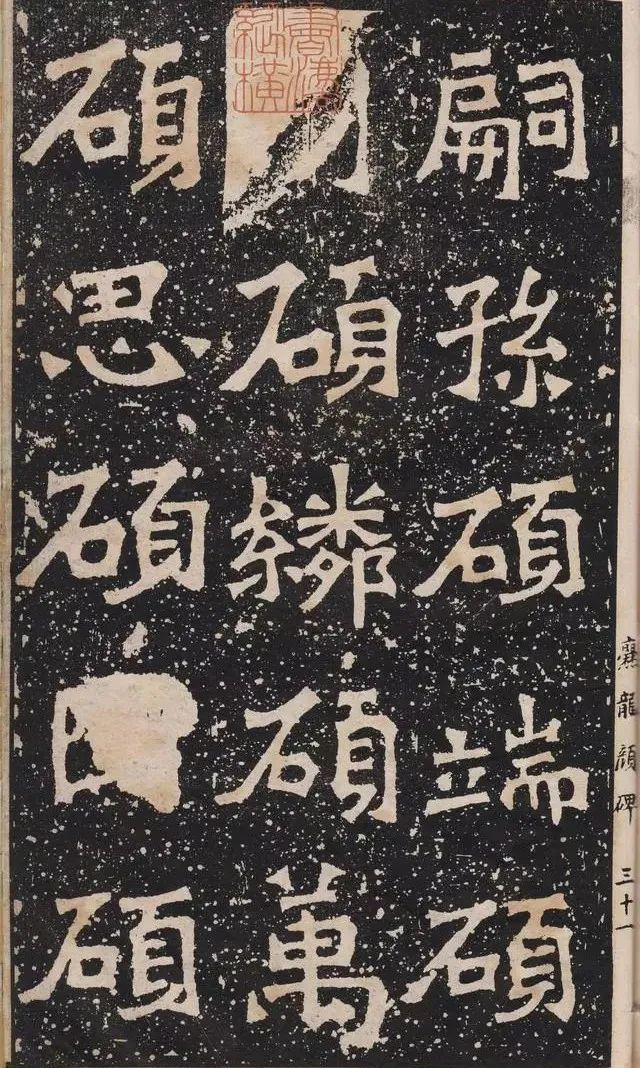 嗣孫碩端碩
碩繗碩萬
碩思碩碩
爨龍顏碑 三十一